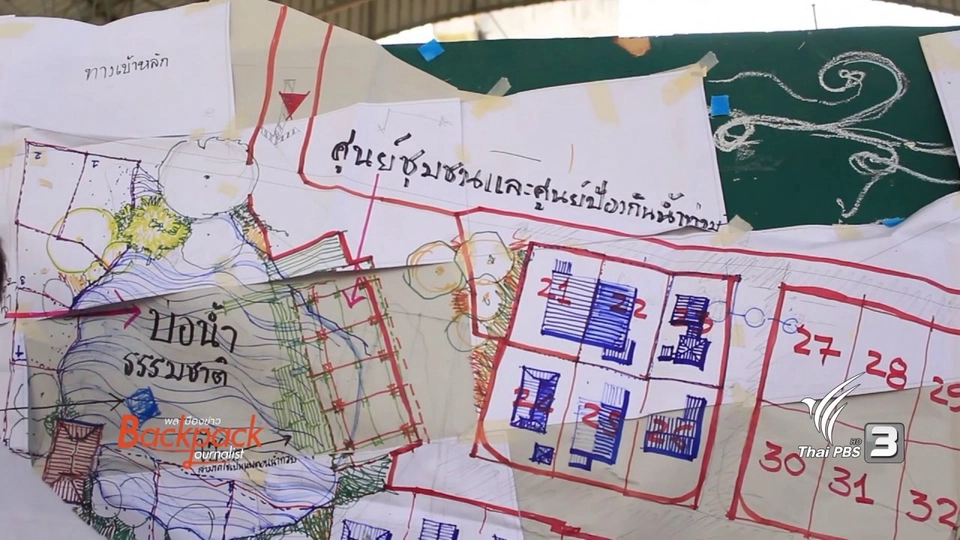 ทางเข้าหลัก
ศูนย์ชุมชนและศูนย์ป้องกันน้ำท่วม
2
1
3
บ่อน้ำ
ธรรมชาติ
21
22
23
24
25
26
27
28
29
30
31
32
พลเมืองข่าว
Backpack
Journalist
Thai PBS
HD
3